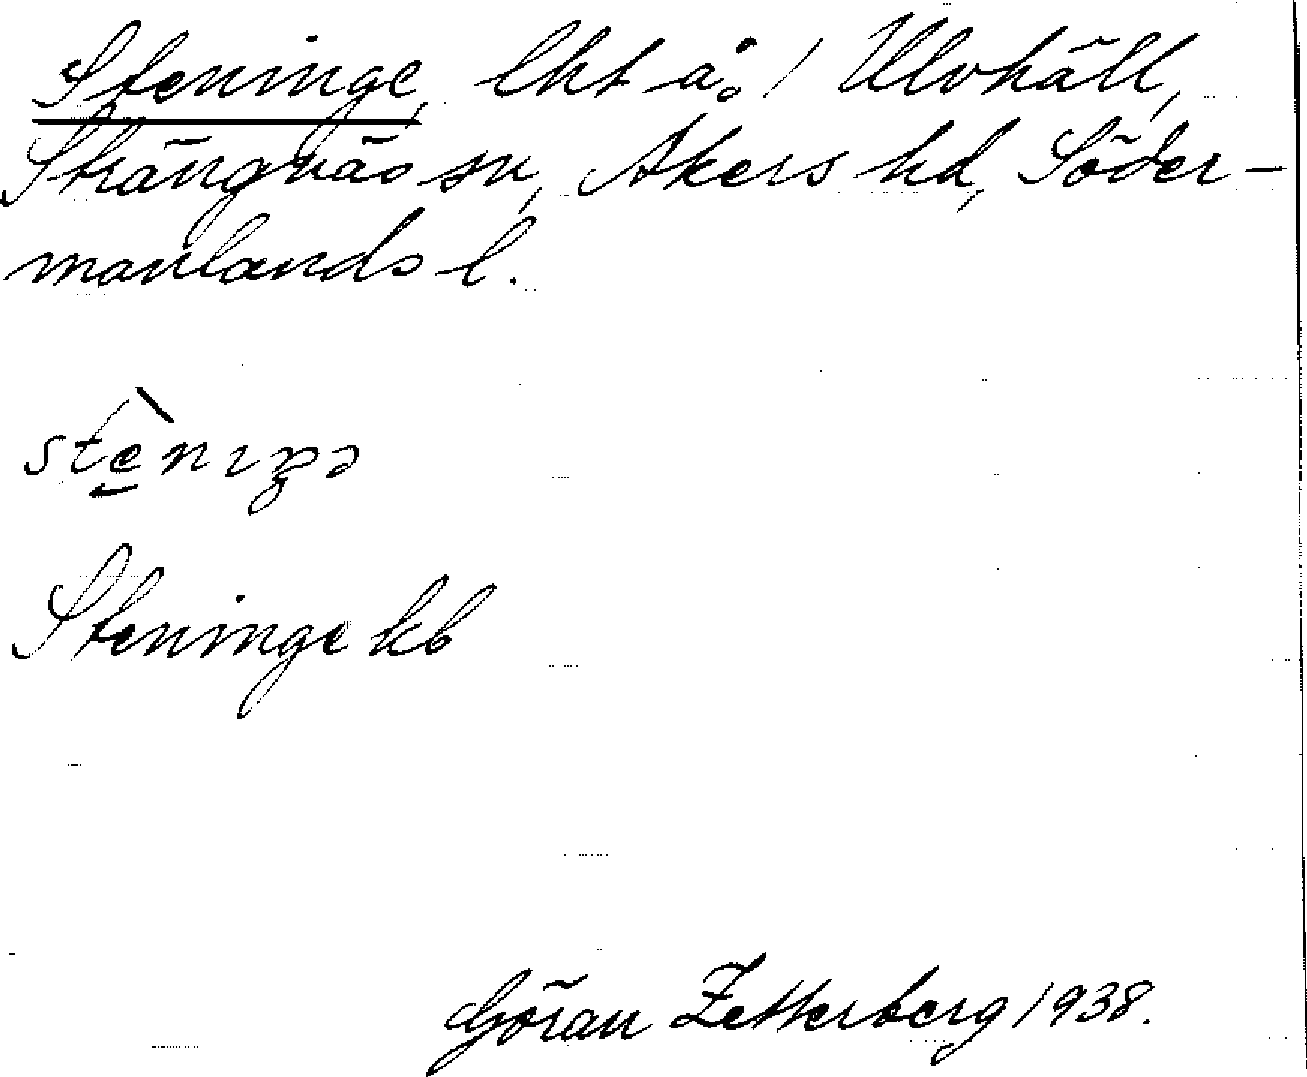 Steninge, lht å. 1 Ulvhäll,
Strängnäs sn, Åkers hd, Söder-
manlands l.
stè̱nıŋə
Steninge kb
Göran Zetterberg 1938.